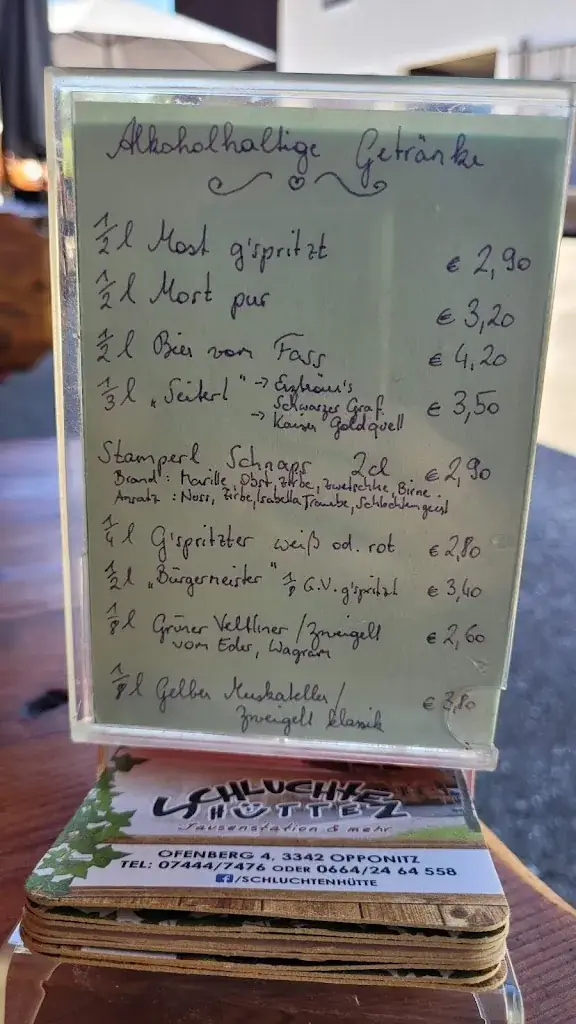 Alkoholhaltige Getränke
½ l Most g'spritzt € 2,90
½ l Most pur € 3,20
½ l Bier vom Fass € 4,20
⅓ l „Seiterl" → Erzbräu's € 3,50
Schwarzer Graf
→ Kaiser Goldquell
Stamperl Schnaps 2cl € 2,90
Brand: Marille, Obst, Zirbe, Zwetschke, Birne.
Ansatz: Nuss, Zirbe, Isabella Traube, Schluchtengeist
¼ l G'spritzter weiß od. rot € 2,80
½ l „Bürgermeister" ⅛ G.V. g'spritzt € 3,40
⅛ l Grüner Veltliner / Zweigelt € 2,60
vom Eder, Wagram
⅛ l Gelber Muskateller / € 3,80
Zweigelt klassik
SCHLUCHTEN
HÜTTE
Jausenstation & mehr
OFENBERG 4, 3342 OPPONITZ
TEL: 07444/7476 ODER 0664/24 64 558
/SCHLUCHTENHÜTTE